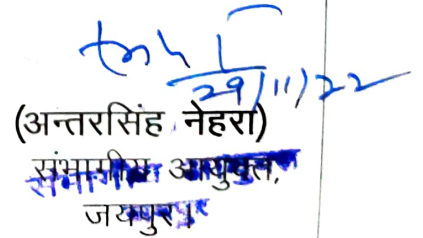 29/11/22
(अन्तरसिंह नेहरा)
संभागीय आयुक्त,
जयपुर।